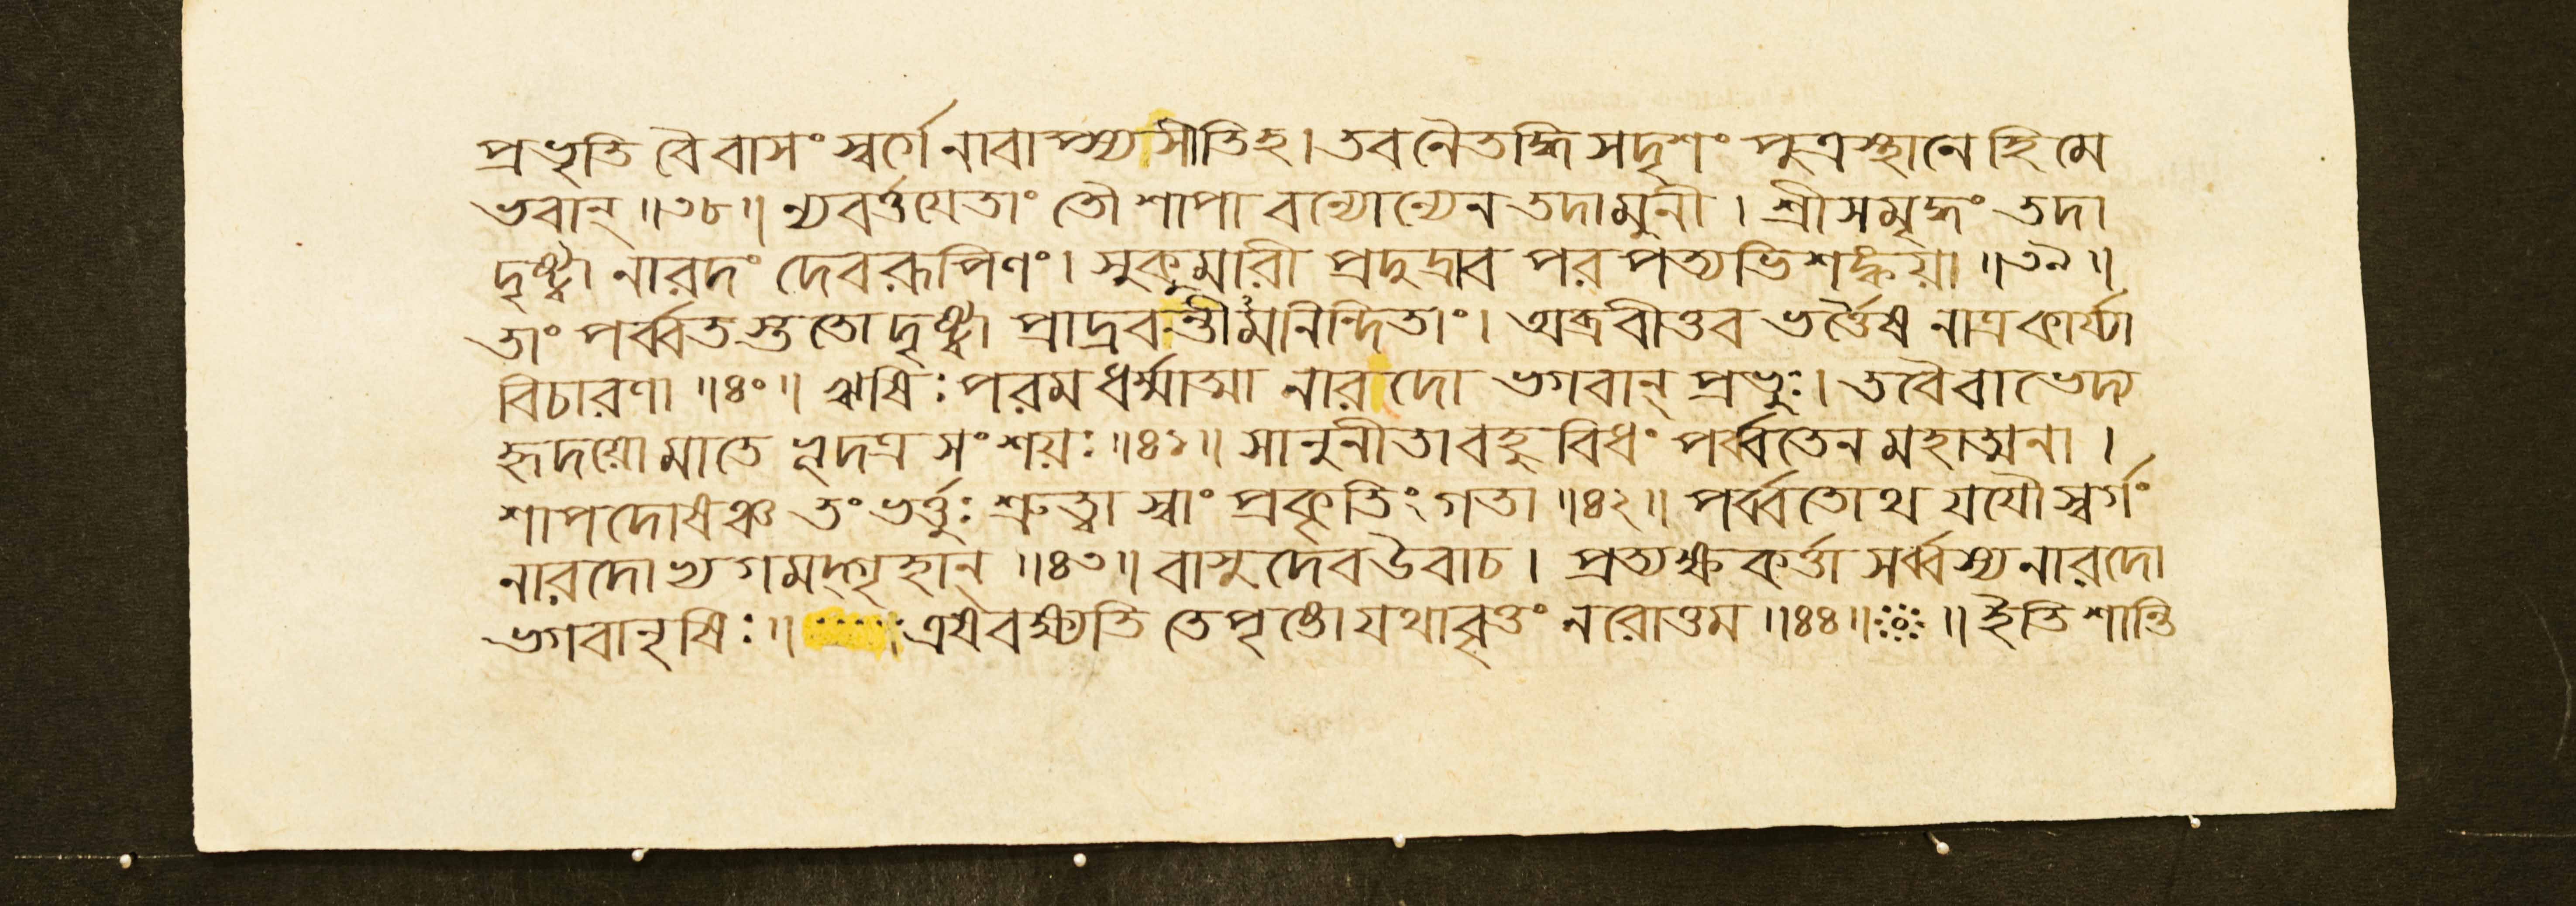 প্রভৃতি বৈ বাসং স্বর্গে নাবাপ্স্যসীতিহ। তব নৈতদ্ধি সদৃশং পুত্রস্থানে হি মে
ভবান্ ॥৩৮॥ ন্যবর্ত্তয়েতাং তৌ শাপা বন্যোন্যেন তদা মুনী। শ্রীসমৃদ্ধং তদা
দৃষ্ট্বা নারদং দেবরূপিণং। সুকুমারী প্রদুদ্রাব পরপত্যভিশঙ্কয়া ॥৩৯॥
তাং পর্ব্বতস্ততো দৃষ্ট্বা প্রাদ্রবন্তীমনিন্দিতাং। অব্রবীত্তব ভর্ত্তৈষ নাত্র কার্য্যা
বিচারণা ॥৪০॥ ঋষিঃ পরমধর্ম্মাত্মা নারদো ভগবান্ প্রভুঃ। তবৈবাভেদ্য
হৃদয়ো মাতে ভূদত্র সংশয়ঃ ॥৪১॥ সানুনীতা বহুবিধং পর্ব্বতেন মহাত্মনা।
শাপদোষঞ্চ তং ভর্ত্তুঃ শ্রুত্বা স্বাং প্রকৃতিং গতা ॥৪২॥ পর্ব্বতোথ যযৌ স্বর্গং
নারদোভ্যগমদ্গৃহান্ ॥৪৩॥ বাসুদেব উবাচ। প্রত্যক্ষকর্ত্তা সর্ব্বস্য নারদো
ভগবানৃষিঃ ॥ এষ বক্ষ্যতি তে পৃষ্টো যথাবৃত্তং নরোত্তম ॥৪৪॥ ॥ ইতি শান্তি